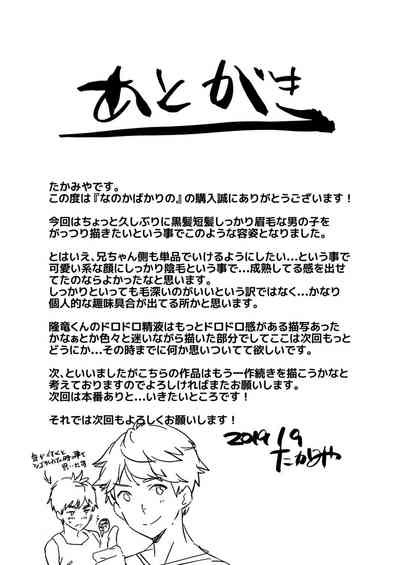 あとがき
たかみやです。
この度は『なのかばかりの』の購入誠にありがとうございます！
今回はちょっと久しぶりに黒髪短髪しっかり眉毛な男の子を
がっつり描きたいという事でこのような容姿となりました。
とはいえ、兄ちゃん側も単品でいけるようにしたい…という事で
可愛い系な顔にしっかり陰毛という事で…成熟してる感を出せ
てたのならよかったなと思います。
しっかりといっても毛深いのがいいという訳ではなく…かなり
個人的な趣味具合が出てる所かと思います。
隆竜くんのドロドロ精液はもっとドロドロ感がある描写あった
かなぁとか色々と迷いながら描いた部分でしてここは次回もっと
どうにか…その時までに何か思いついてて欲しいです。
次、といいましたがこちらの作品はもう一作続きを描こうかなと
考えておりますのでよろしければまたお願いします。
次回は本番ありと…いきたいところです！
それでは次回もよろしくお願いします！
2019 19
たかみや